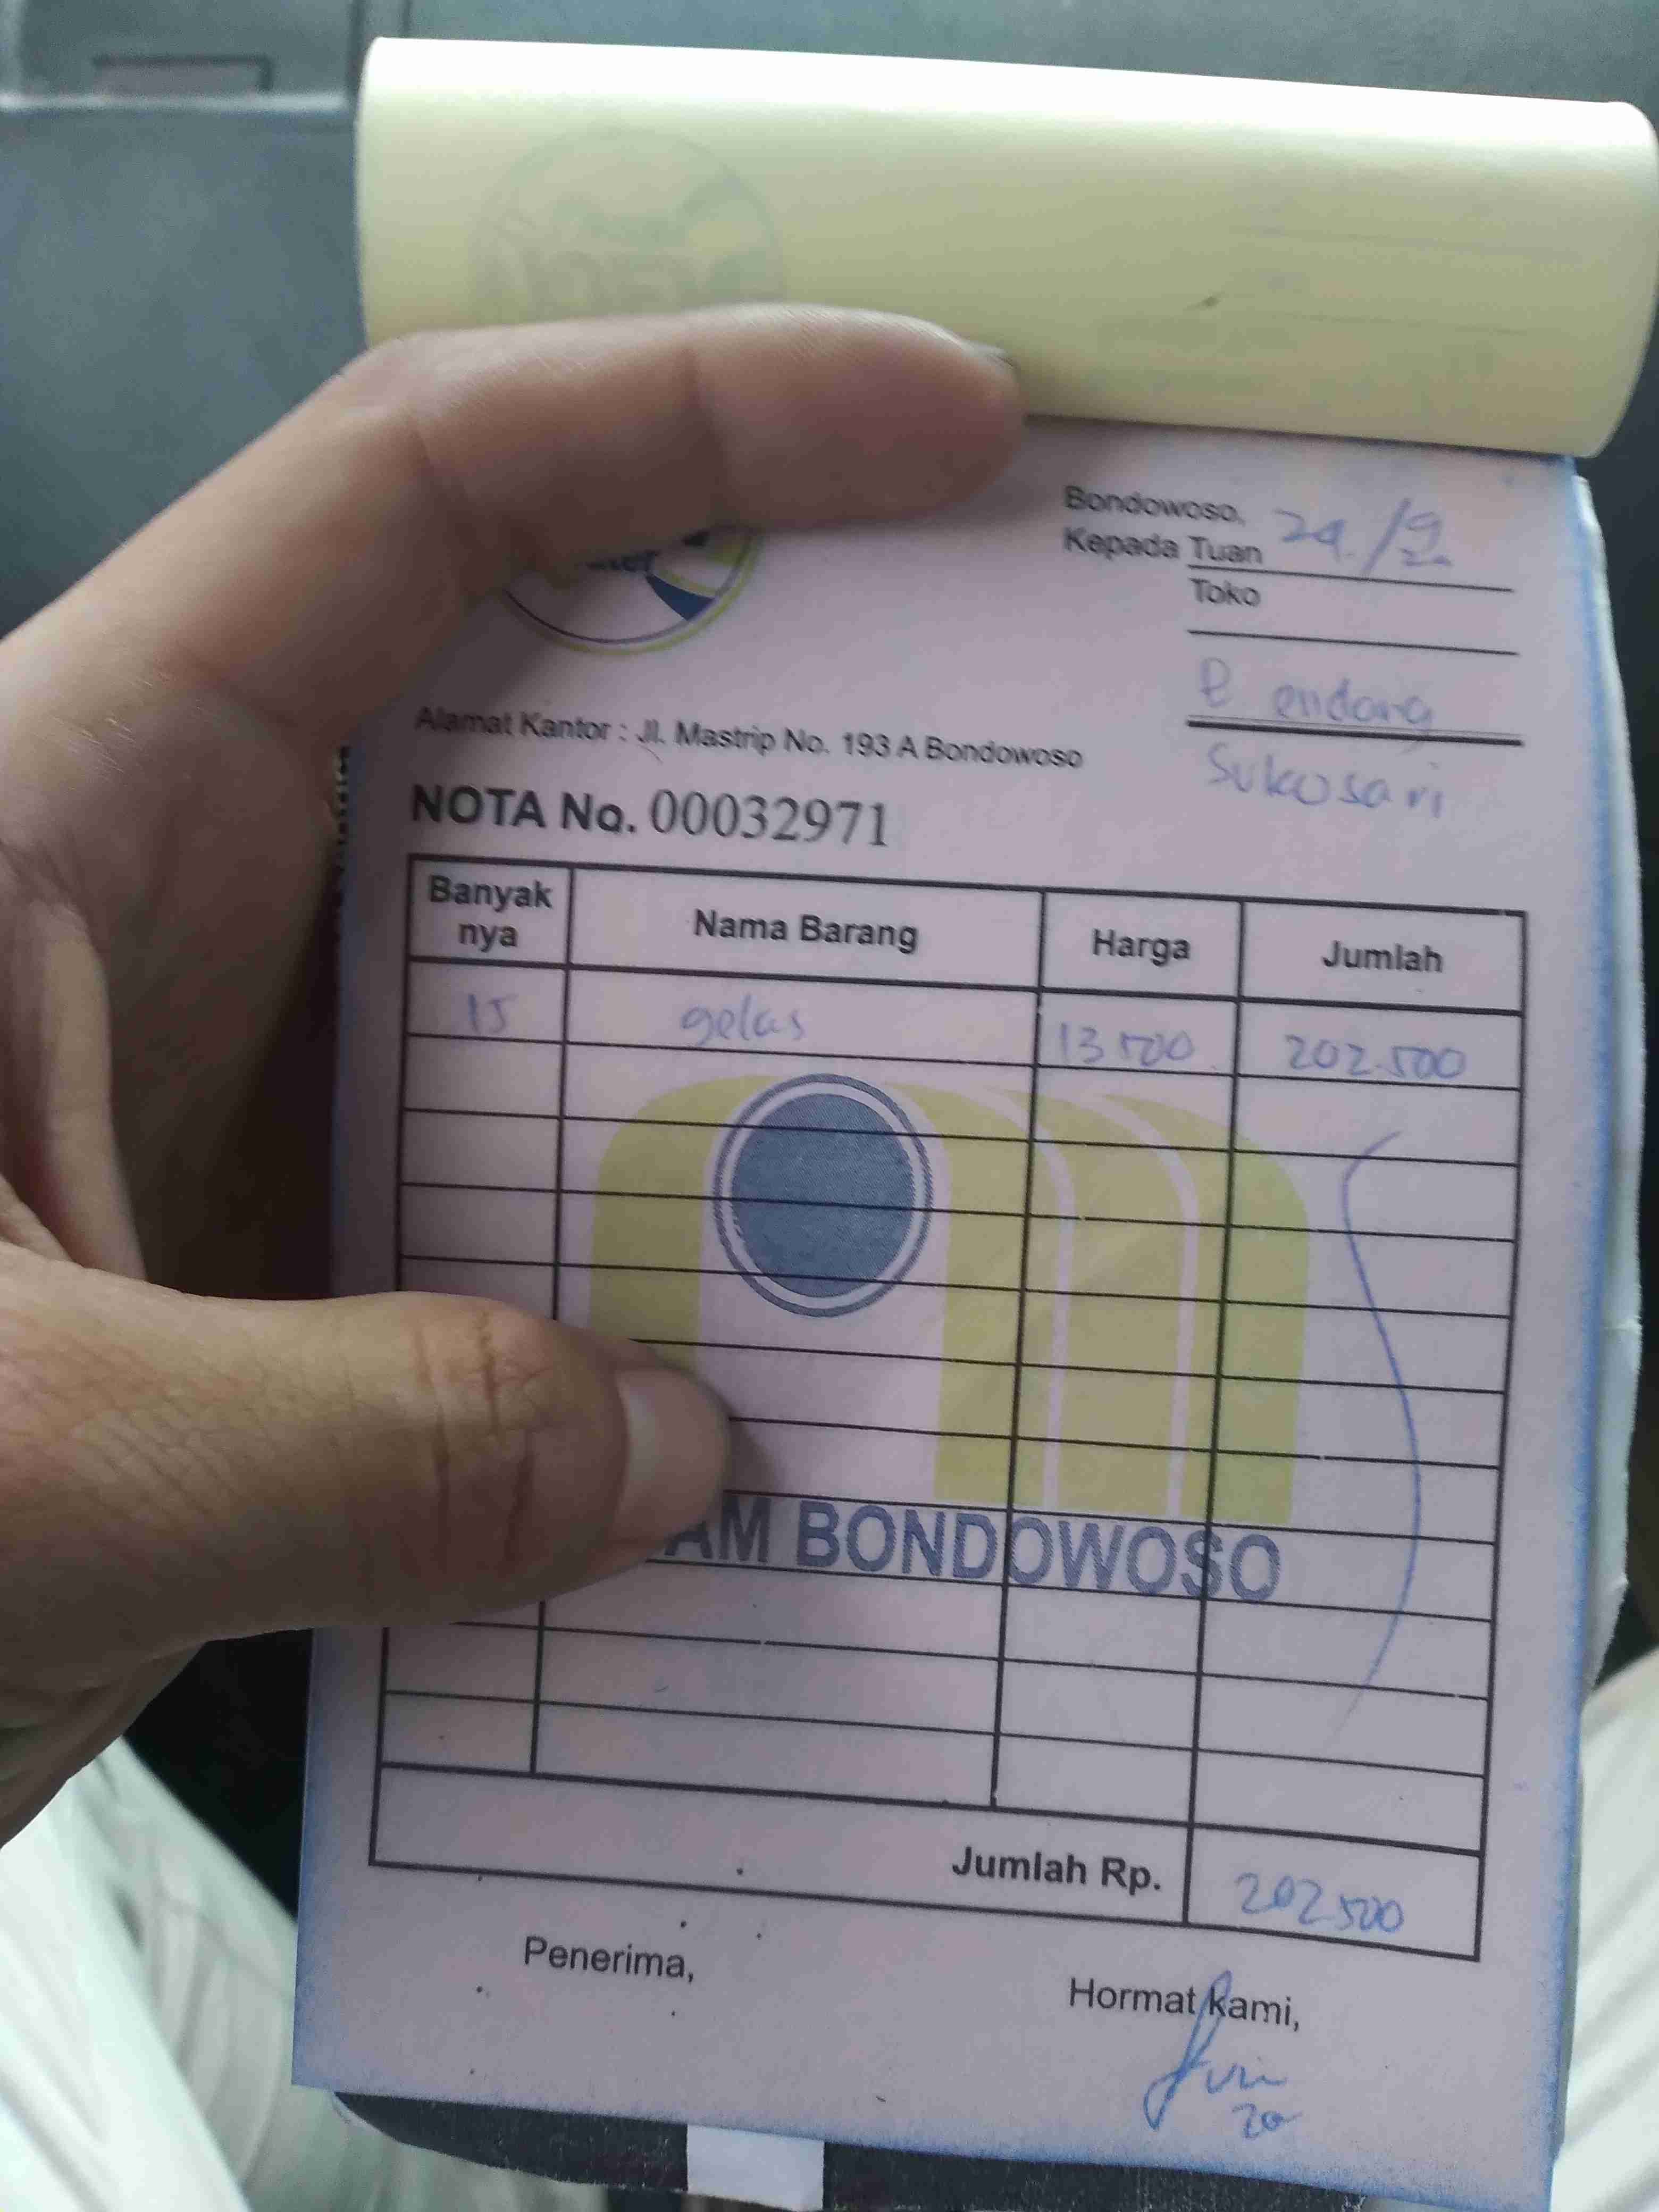 Bondowoso, 24/9
Kepada Tuan
Toko
P endang
Sukosari
Alamat Kantor : Jl. Mastrip No. 193 A Bondowoso
NOTA No. 00032971
Banyak nya Nama Barang Harga Jumlah
15 gelas 13 500 202.500
AM BONDOWOSO
Jumlah Rp. 202.500
Penerima,
Hormat kami,